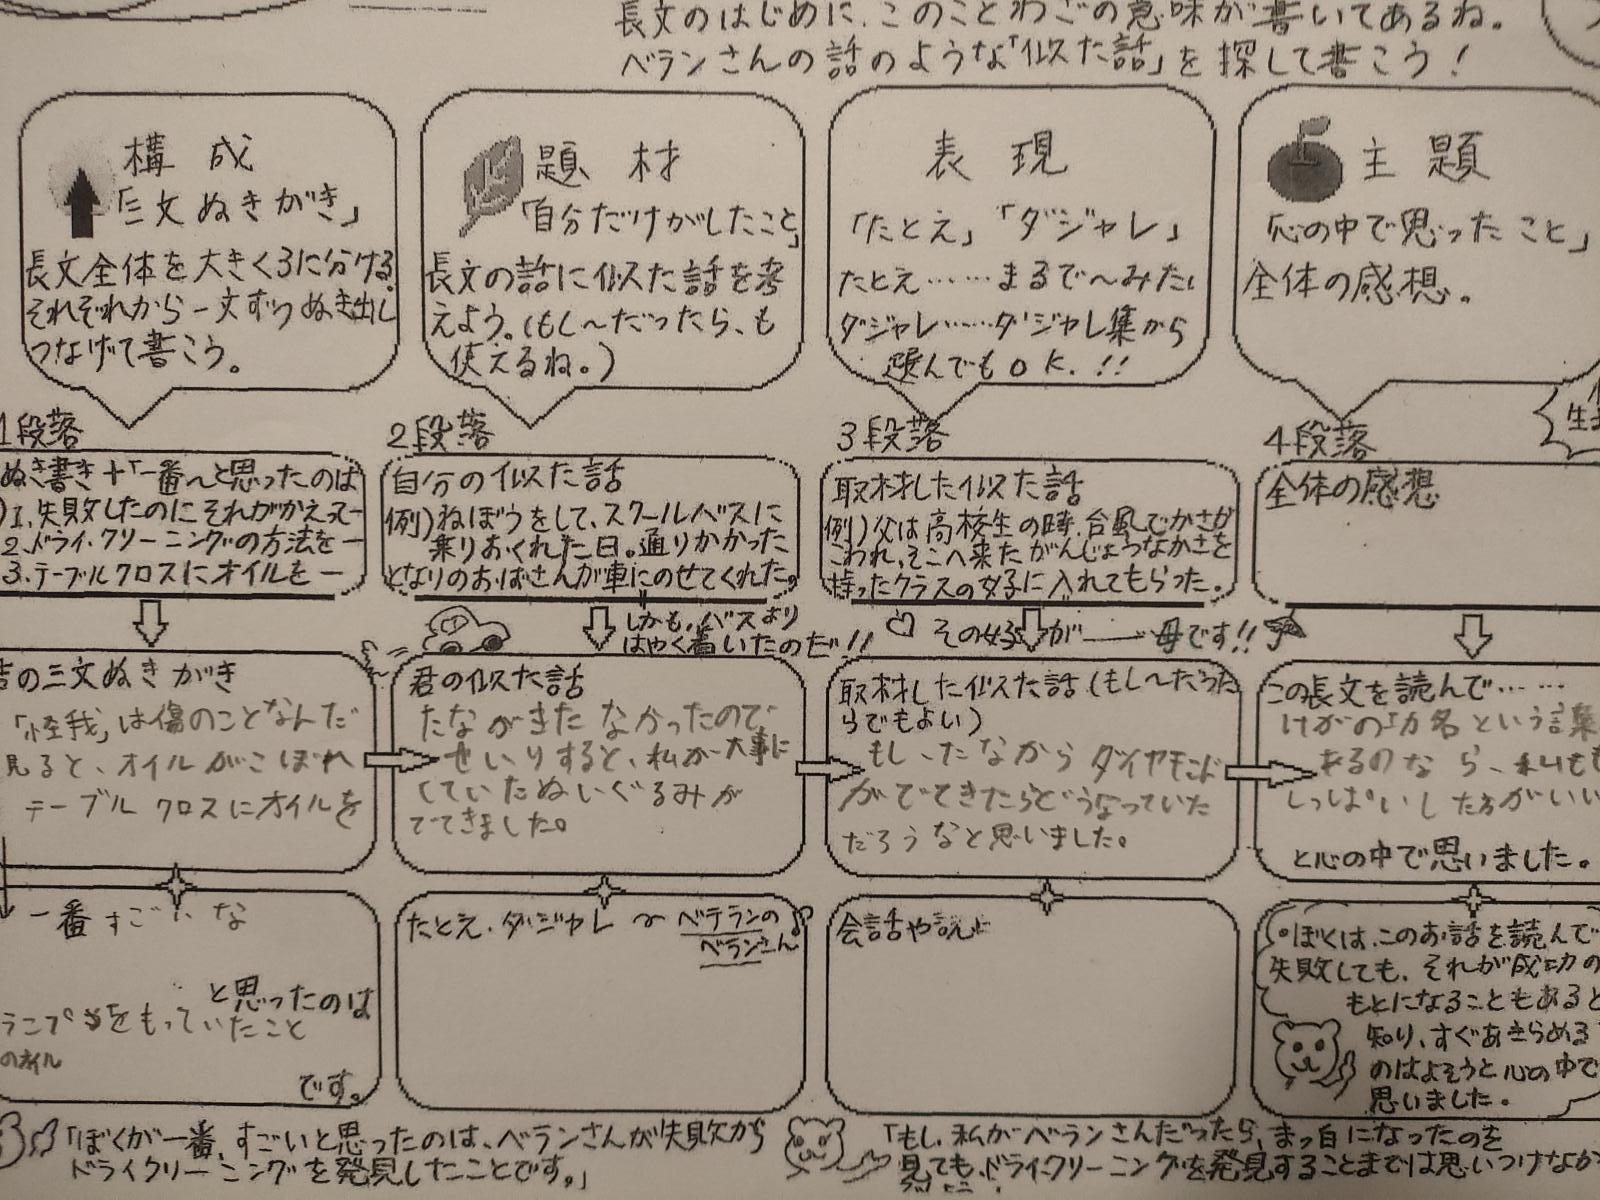 長文のはじめに、このことわざの意味が書いてあるね。
ベランさんの話のような「似た話」を探して書こう！
構成
「三文ぬきがき」
長文全体を大きく3に分ける。
それぞれから一文ずつぬき出し
つなげて書こう。
題材
「自分だけがしたこと」
長文の話に似た話を考
えよう。(もし〜だったら、も
使えるね。)
表現
「たとえ」「ダジャレ」
たとえ……まるで〜みたい
ダジャレ……ダジャレ集から
選んでもOK.!!
主題
「心の中で思ったこと」
全体の感想。
1段落
ぬき書き+「一番〜と思ったのは
1.失敗したのにそれがかえって一
2.ドライ・クリーニングの方法を一
3.テーブルクロスにオイルを一
2段落
自分の似た話
例)ねぼうをして、スクールバスに
乗りおくれた日。通りかかった
となりのおばさんが車にのせてくれた。
しかも、バスより
はやく着いたのだ!!
3段落
取材した似た話
例)父は高校生の時、台風でかさが
こわれ、そこへ来たがんじょうなかさを
持ったクラスの女子に入れてもらった。
その女子が——母です!!
4段落
全体の感想
の三文ぬきがき
「怪我」は傷のことなんだ
見ると、オイルがこぼれ
テーブルクロスにオイルを
君の似た話
たながきたなかったので
せいりすると、私が大事に
していたぬいぐるみが
でてきました。
取材した似た話(もし〜だった
らでもよい)
もし、たなからダイヤモンド
がでてきたらどうなっていた
だろうなと思いました。
この長文を読んで……
けがの功名という言葉
あるのなら、私も
しっぱいした方がいい
と心の中で思いました。
一番すごいな
と思ったのは
ランプをもっていたこと
のオイル
です。
たとえ・ダジャレ〜ベテランの
ベランさん
会話や説
ぼくは、このお話を読んで
失敗しても、それが成功の
もとになることもあると
知り、すぐあきらめる
のはよそうと心の中で
思いました。
「ぼくが一番、すごいと思ったのは、ベランさんが失敗から
ドライクリーニングを発見したことです。」
「もし、私がベランさんだったら、まっ白になったのを
見ても、ドライクリーニングを発見することまでは思いつけなか